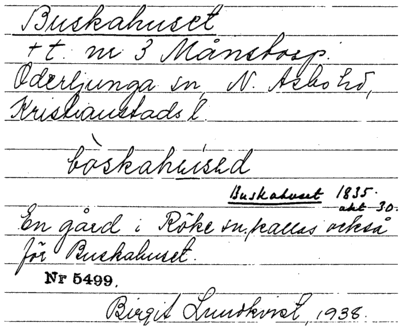 Buskahuset
+ t. nr 3 Månstorp.
Oderljunga sn, N. Asbo hd,
Kristianstads l.
bòskahuised
Buskahuset 1835.
akt 30.
En gård i Röke sn, kallas också
för Buskahuset.
Nr 5499.
Birgit Lundkvist, 1938.